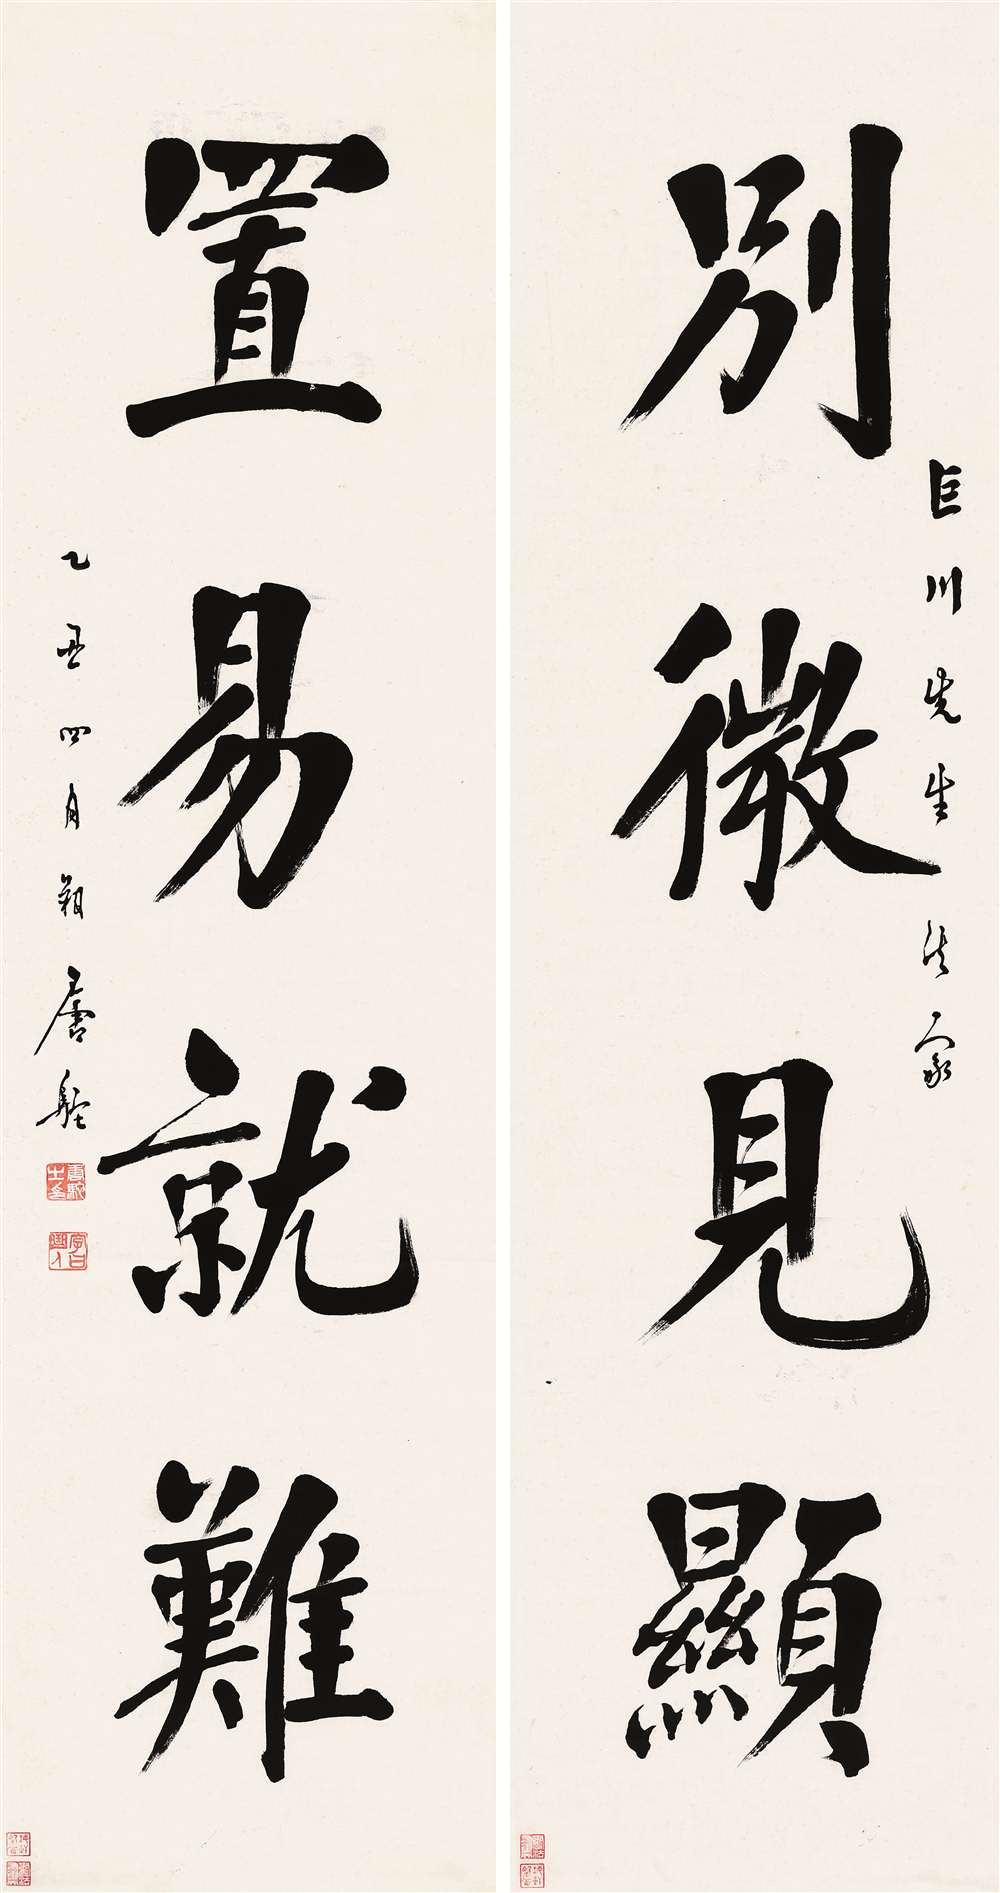 別微見顯
巨川先生 法家
置易就難
乙丑四月朔 唐駝
唐駝之印